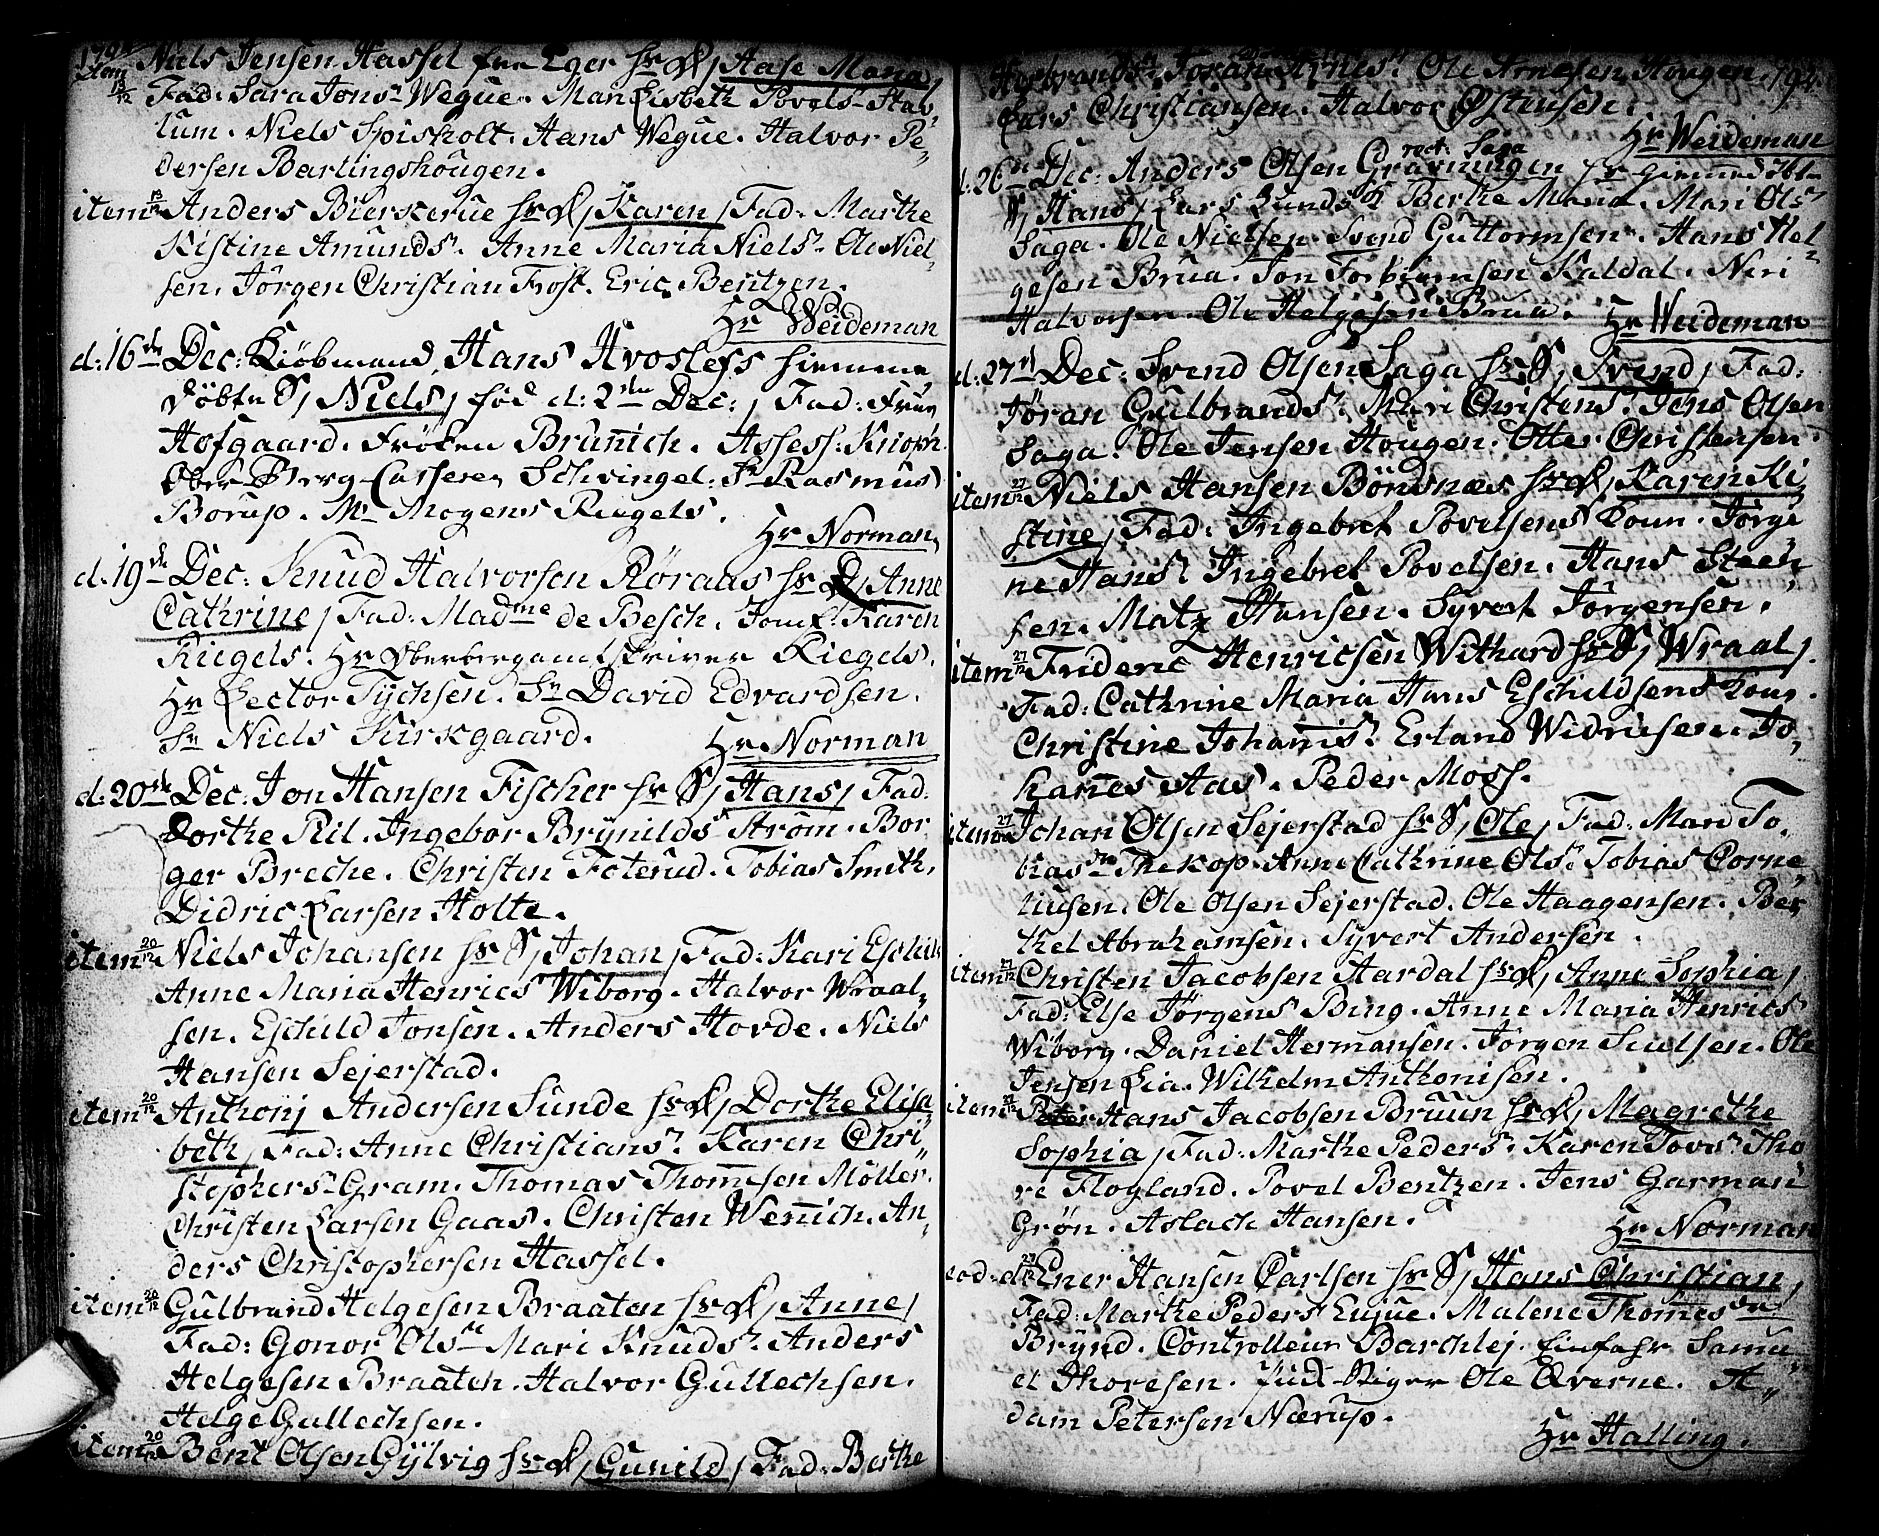 item 13/12 Niels Jensen Hassel fra Eger hr D, Aase Maria,
Fad: Sara Jons- Wegue. Mari Lisbeth Povels- Stal,,
lum. Niels Spisholt. Hans Wegue. Halvor Pe,,
dersen Barlingshougen.
item Anders Bierkerue hr D, Karen, Fad: Marthe
Kistine Amunds-. Anne Maria Niels-. Ole Niel,,
sen. Jörgen Christian Frost. Eric Bentzen.
Hr Weideman
d: 16de Dec: Kiöbmand, Hans Hvoslefs hiemme
döbte S, Niels, fød d: 2den Dec:, Fad: Frue
Hofgaard. Fröken Brünich. Assess: Knioph.
Ober Berg-Casserer Schvingel: Sr Rasmus
Borup. Mr Mogens Riegels.
Hr Norman,
d: 19de Dec: Knud Halvorsen Röraas hr D, Anne
Cathrine, Fad: Madme de Besch. Jomf: Karen
Riegels. Hr Oberbergamtskriver Riegels.
Hr Lector Tychsen. Sr David Edvardsen.
Sr Niels Kirkgaard.
Hr Norman
d: 20de Dec: Jon Hansen Fischer hr S, Hans, Fad:
Dorthe Ril. Ingebor Brÿnilds- Ström. Bor
ger Breche. Christen Foterud. Tobias Smith.
Didric Larsen Holte.
item 20/12 Niels Johansen hr S, Johan, Fad: Kari Eschilds
Anne Maria Henrics Wiborg. Halvor Wraal,,
sen. Eschild Jonsen. Anders Hovde. Niels
Hansen Sejerstad.
item 20/12 Anthonj Andersen Sunde hr D, Dorthe Elisa,,
beth, Fad: Anne Christians-. Karen Chri,,
stophers- Gram. Thomas Thomesen Möller.
Christen Larsen Gaas. Christen Wennich. An,,
ders Christophersen Hassel.
item 20/12 Gulbrand Helgesen Braaten hr D, Anne,
Fad: Gonor Ols- Mari Knuds-. Anders
Helgesen Braaten. Halvor Gullechsen.
Helge Gullechsen.
item 20/12 Bent Olsen Gÿlvig hr D, Gunild, Fad: Berthe
Herbrands-. Joran Ole Arnesen Hougen. 194.
Lars Christiansen. Halvor Östensen.
Hr Weideman
d: 26de Dec: Anders Olsen Gravningen rect: Saga hr hiemmedöbte
S, Hans, Lars Lunds K Berthe Maria. Mari Ols-
Saga. Ole Nielsen. Svend Guttormsen. Hans Hel,,
gesen Brua. Jon Torbiørnsen Kaldal. Niri
Halvorsen. Ole Helgesen Brua.
Hr Weideman
d: 27de Dec: Svend Olsen Saga hr S, Svend, Fad:
Jöran Gulbrands-. Mari Christens-. Jens Olsen
Saga. Ole Jensen Hougen. Otter Christensen.
item 27/12 Niels Hansen Böndsnæs hr D, Karen Ki,,
stine, Fad: Ingebret Povelsens Koun. Jörgi,,
ne Hans-. Ingebret Povelsen. Hans Steen,,
sen. Matz Hansen. Syvert Jörgensen.
item 27/12 Frideric Henricsen Withard hr S, Wraal,
Fad: Cathrine Maria Hans Eschildsens Koun.
Christine Johanis-. Erland Widricsen. Jo,,
hanes Aas. Peder Moss.
item 27/12 Johan Olsen Sejerstad hr S, Ole, Fad: Mari To,,
bias- Thekop. Anne Cathrine Ols-. Tobias Corne,,
liusen. Ole Olsen Sejerstad. Ole Haagensen. Ber,,
thel Abrahamsen. Syvert Andersen.
item 27/12 Christen Jacobsen Aardal hr D, Anne Sophia,
Fad: Else Jörgens Bing. Anne Maria Henrics
Wiborg. Daniel Hermansen. Jörgen Juelsen. Ole
Jensen Lia. Wilhelm Anthonisen.
item 27/12 Peter Hans Jacobsen Bruun hr D, Magrethe
Sophia, Fad: Marthe Peders-. Karen Tovs-. Tho,,
re Flogland. Povel Bentzen. Jens Garman
Grön. Aslach Hansen.
Hr Norman
eod: d: 27/12 Ener Hansen Carlsen hr S, Hans Christian,
Fad: Marthe Peders Eujue. Malene Thomes-
Brÿnd. Controlleur Barchlej. Einfahr Samu,,
el Thoresen. Ole Qverne. A,,
dam Petersen Nærup.
Hr Halling.